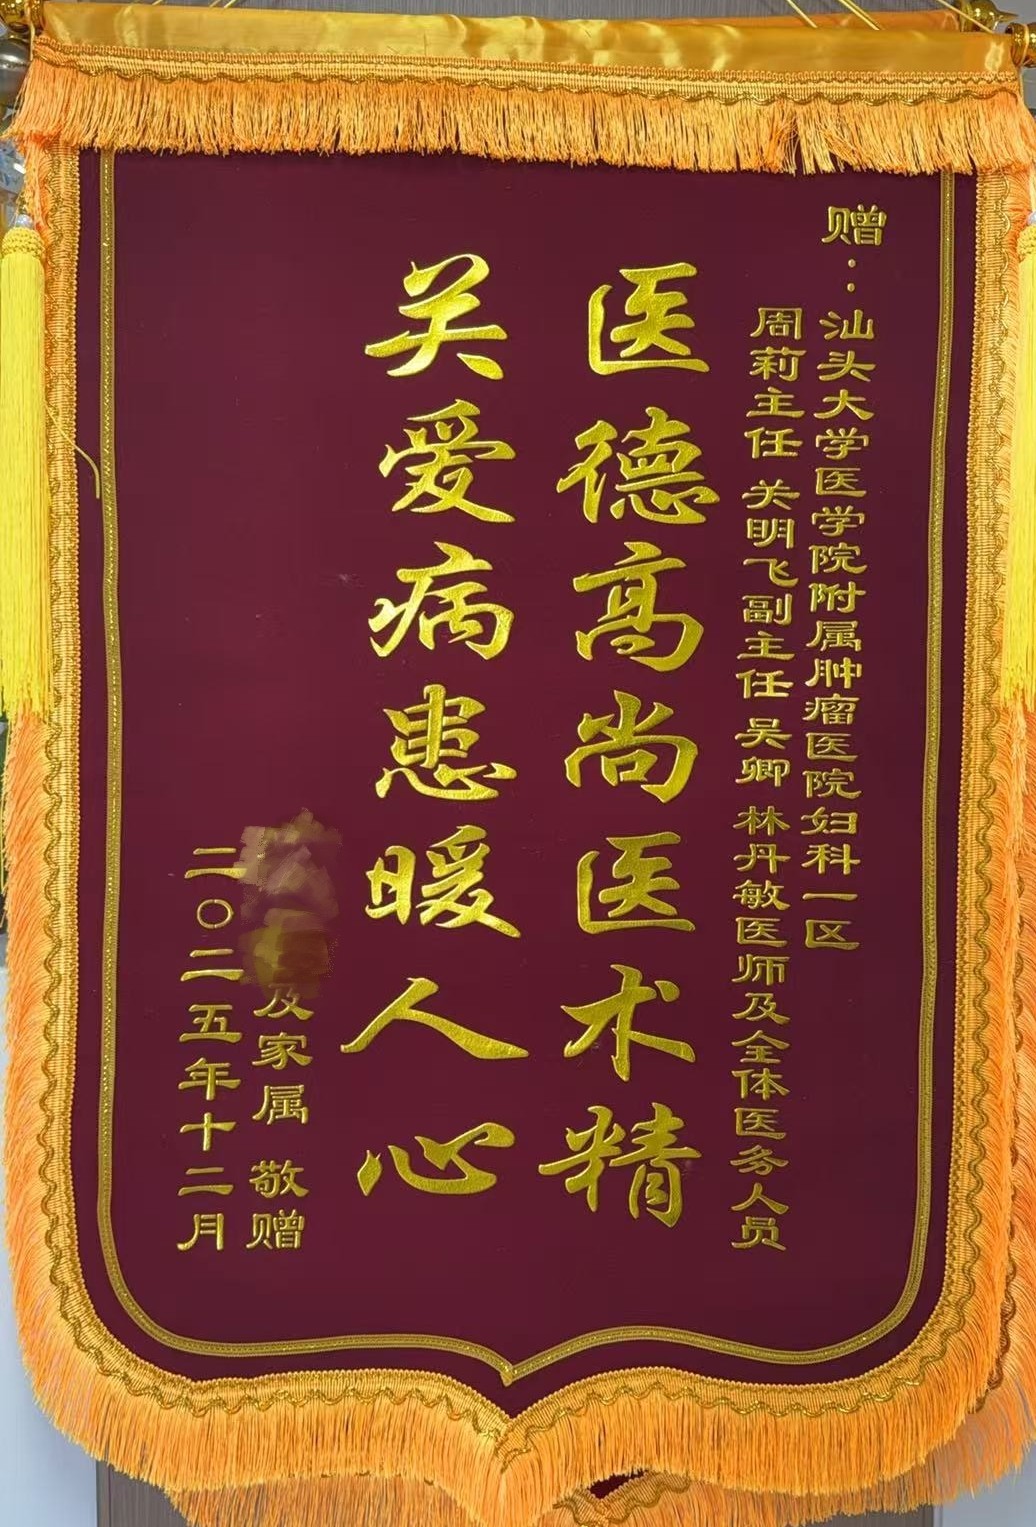 赠：汕头大学医学院附属肿瘤医院妇科一区
周莉主任 关明飞副主任 吴卿 林丹敏医师及全体医务人员
医德高尚医术精
关爱病患暖人心
及家属 敬赠
二〇二五年十二月